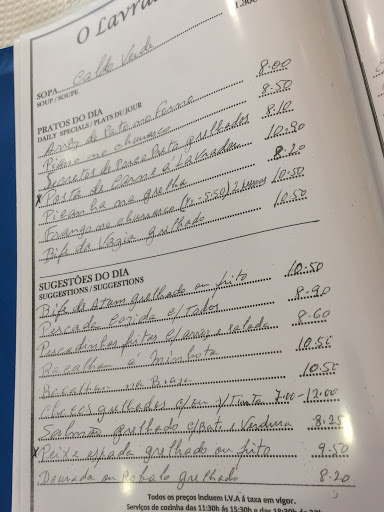 O Lavra
1.30€
SOPA Caldo Verde
SOUP / SOUPE
PRATOS DO DIA
DAILY SPECIALS / PLATS DU JOUR
Arroz de Pato no Forno 8.00
no churrasco 8.50
x Secretos de Porco Preto grelhados 8.10
Posta de Carne à Lavrador 10.90
Picanha na grelha 8.20
Frango no churrasco (½-5.50) 2 10.50
Bife da Vazia grelhado 10.50
SUGESTÕES DO DIA
SUGGESTIONS / SUGGESTIONS
Bife de Atum grelhado ou frito 10.50
Pescada Cozida c/ Todos 8.90
Pescadinhas fritas c/ arroz e salada 8.60
Bacalhau à Minhota 10.50
Bacalhau na Brasa 10.50
Chocos grelhados c/ou s/ Tinta 7.00-12.00
Salmão grelhado c/Bat. e Verdura 8.25
x Peixe espada grelhado ou frito 9.50
Dourada ou Robalo grelhado 8.20
Todos os preços incluem I.V.A á taxa em vigor.
Serviços de cozinha das 11:30h às 15:30h e das 18:30h às